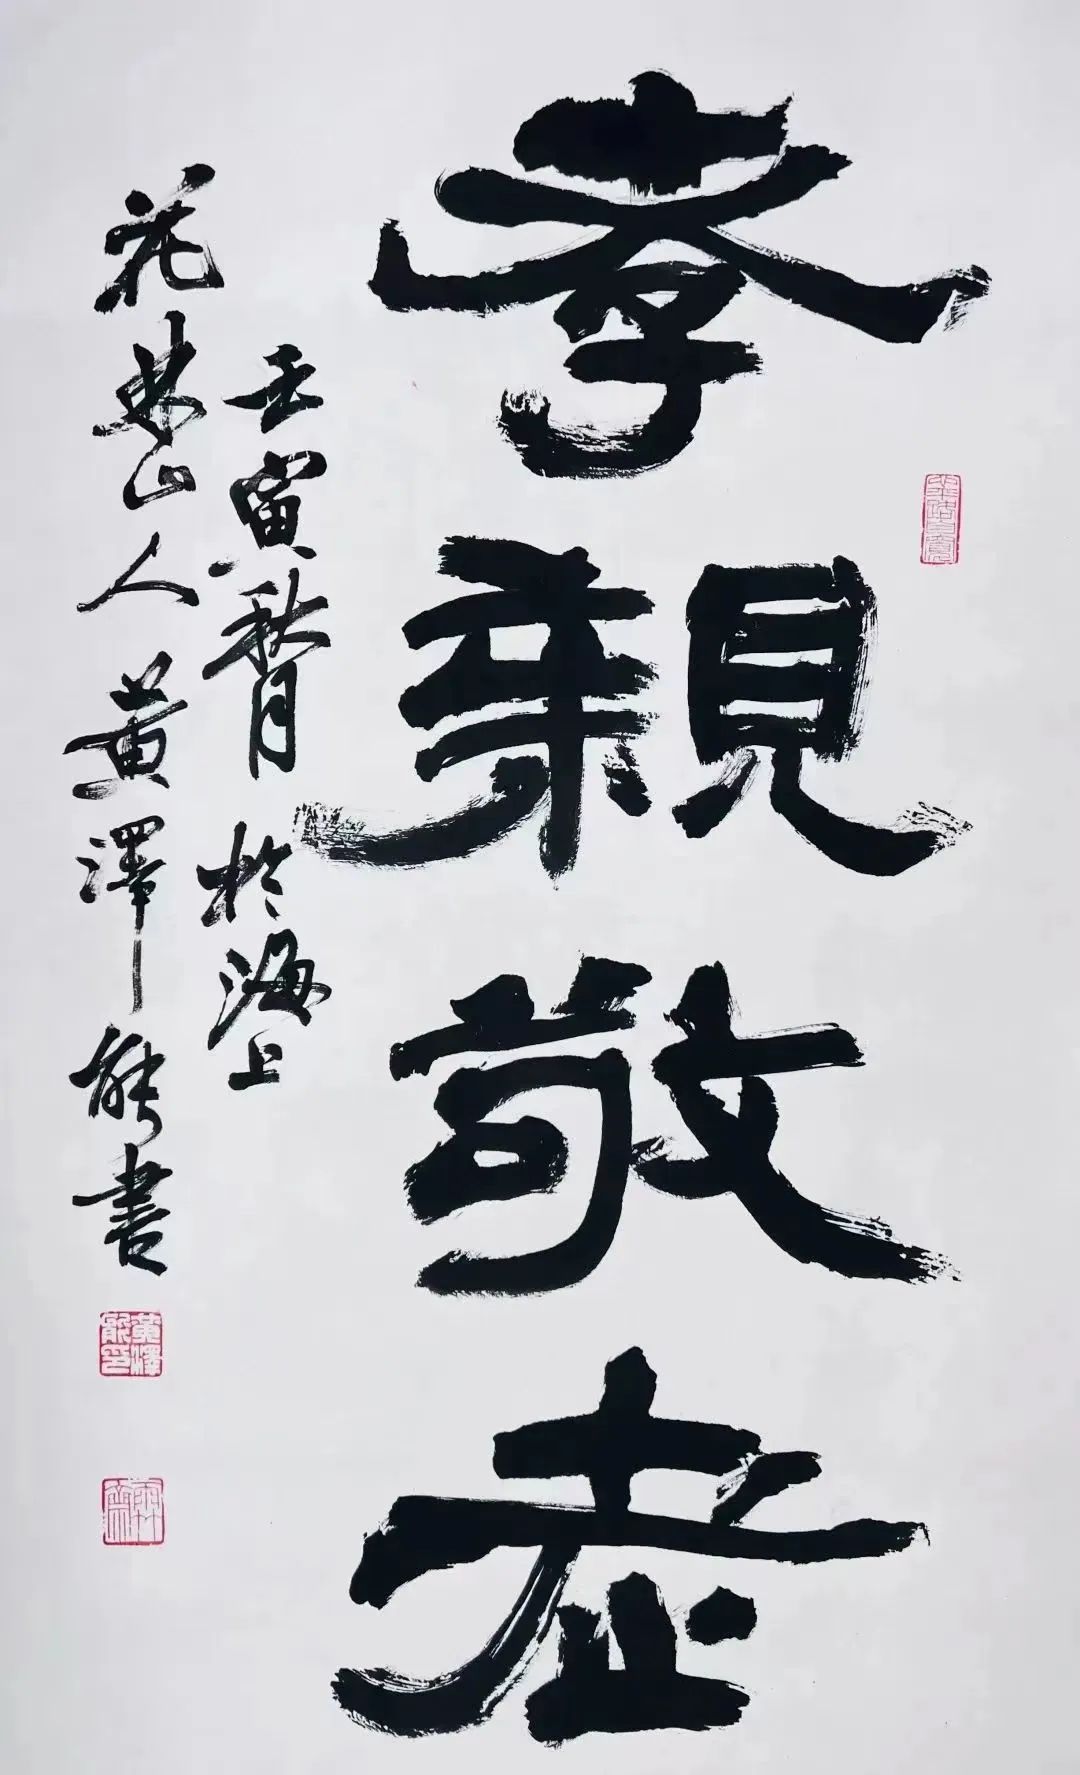 孝親敬老
壬寅秋月於海上
花果山人黄澤能書
黄澤能印